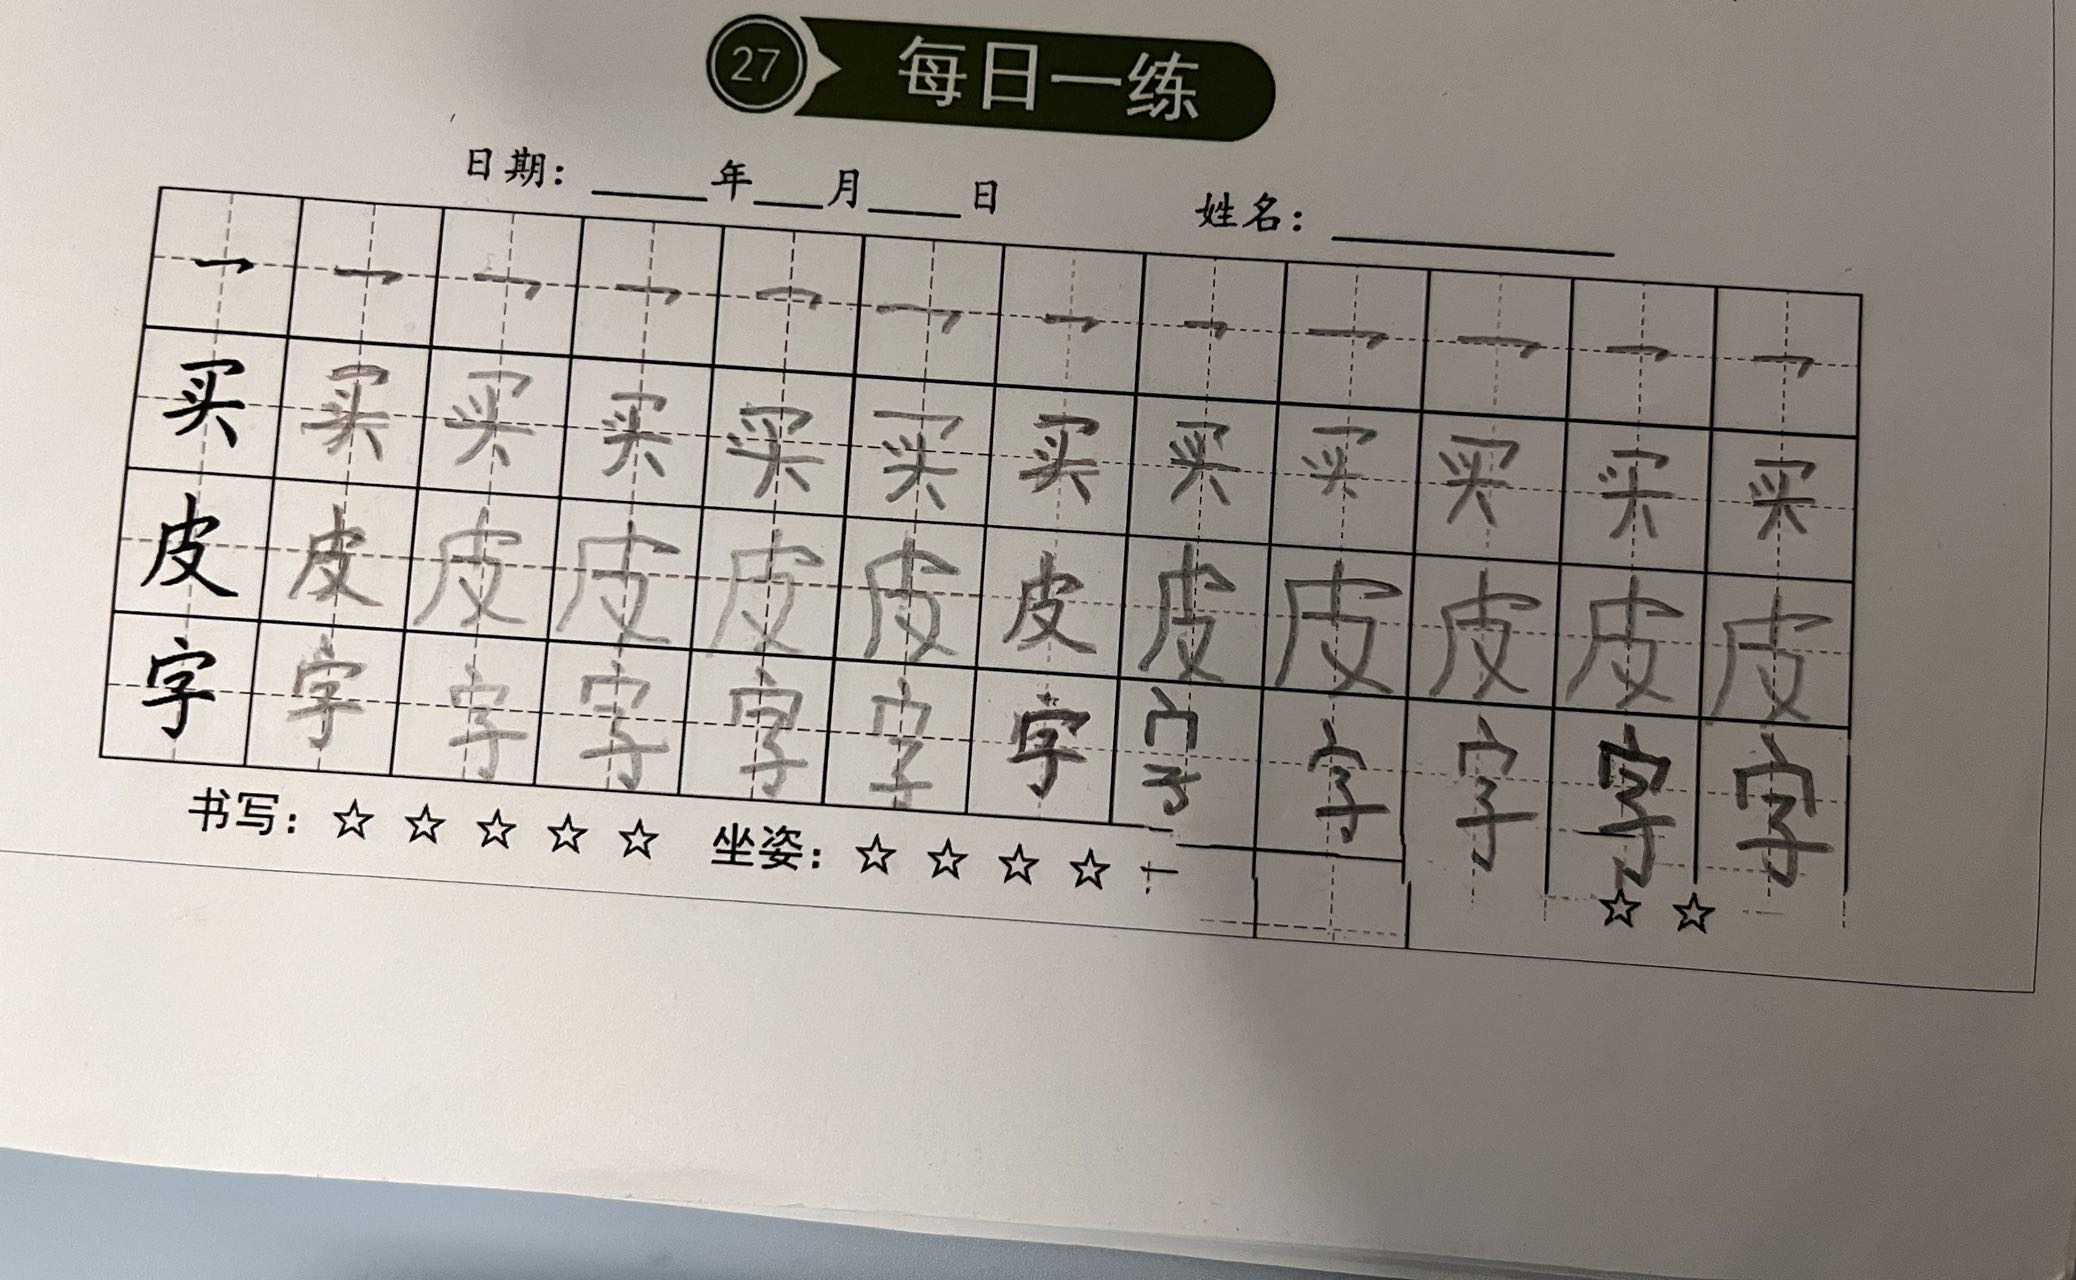 27 每日一练
日期：____年__月__日 姓名：________
㇖ ㇖ ㇖ ㇖ ㇖ ㇖ ㇖ ㇖ ㇖ ㇖ ㇖ ㇖
买 买 买 买 买 买 买 买 买 买 买 买
皮 皮 皮 皮 皮 皮 皮 皮 皮 皮 皮 皮
字 字 字 字 字 字 字 字 字 字 字 字
书写：☆ ☆ ☆ ☆ ☆ 坐姿：☆ ☆ ☆ ☆ ☆ ☆